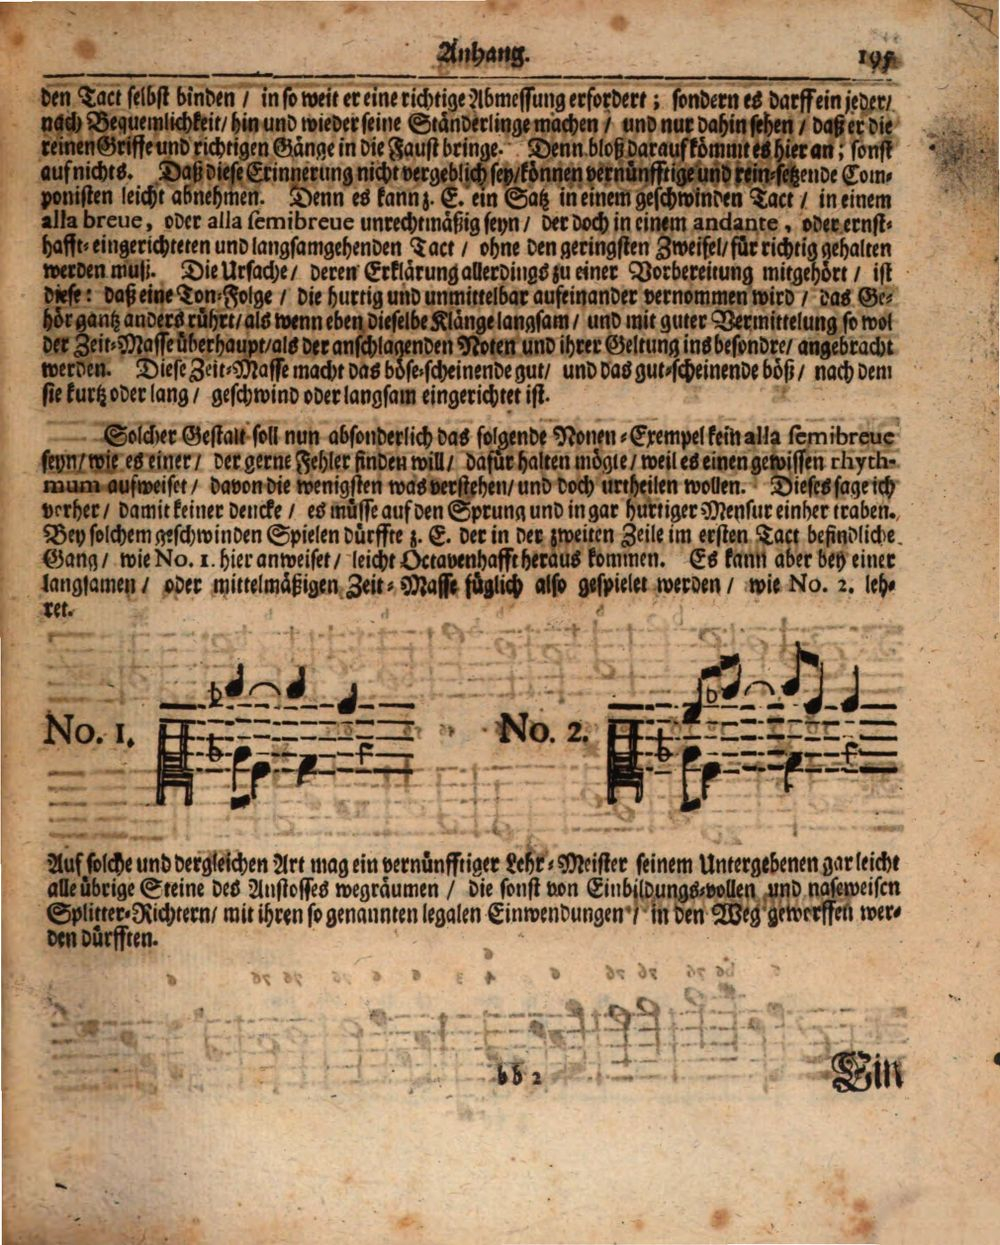 Anhang. 195
den Tact selbst binden / in so weit er eine richtige Abmessung erfordert; sondern es darff ein jeder/
nach Bequemlichkeit/ hin und wieder seine Ständerlinge machen / und nur dahin sehen / daß er die
reinen Griffe und richtigen Gänge in die Faust bringe. Denn bloß darauf kömmt es hier an; sonst
auf nichts. Daß diese Erinnerung nicht vergeblich sey/können vernünfftige und rein-setzende Com-
ponisten leicht abnehmen. Denn es kann z. E. ein Satz in einem geschwinden Tact / in einem
alla breue, oder alla semibreue unrechtmäßig seyn / der doch in einem andante, oder ernst-
hafft-eingerichteten und langsamgehenden Tact / ohne den geringsten Zweifel/ für richtig gehalten
werden muß. Die Ursache/ deren Erklärung allerdings zu einer Vorbereitung mitgehört / ist
diese: daß eine Ton-Folge / die hurtig und unmittelbar aufeinander vernommen wird / das Ge-
hör gantz anders rührt/ als wenn eben dieselbe Klänge langsam / und mit guter Vermittelung so wol
der Zeit-Masse überhaupt/als der anschlagenden Noten und ihrer Geltung ins besondre/ angebracht
werden. Diese Zeit-Masse macht das böse-scheinende gut/ und das gut-scheinende böß / nach dem
sie kurtz oder lang / geschwind oder langsam eingerichtet ist.
Solcher Gestalt soll nun absonderlich das folgende Nonen-Exempel kein alla semibreue
seyn/ wie es einer / der gerne Fehler finden will / dafür halten mögte / weil es einen gewissen rhyth-
mum aufweiset / davon die wenigsten was verstehen/ und doch urtheilen wollen. Dieses sage ich
vorher / damit keiner dencke / es müsse auf den Sprung und in gar hurtiger Mensur einher traben.
Bey solchem geschwinden Spielen dürffte z. E. der in der zweiten Zeile im ersten Tact befindliche
Gang / wie No. 1. hier anweiset / leicht Octavenhafft heraus kommen. Es kann aber bey einer
langsamen / oder mittelmäßigen Zeit-Masse füglich also gespielet werden / wie No. 2. leh-
ret.
No. 1. No. 2.
Auf solche und dergleichen Art mag ein vernünfftiger Lehr-Meister seinem Untergebenen gar leicht
alle übrige Steine des Anstosses wegräumen / die sonst von Einbildungs-vollen und naseweisen
Splitter-Richtern/ mit ihren so genannten legalen Einwendungen / in den Weg geworffen wer-
den dürfften.
bb 2 Ein